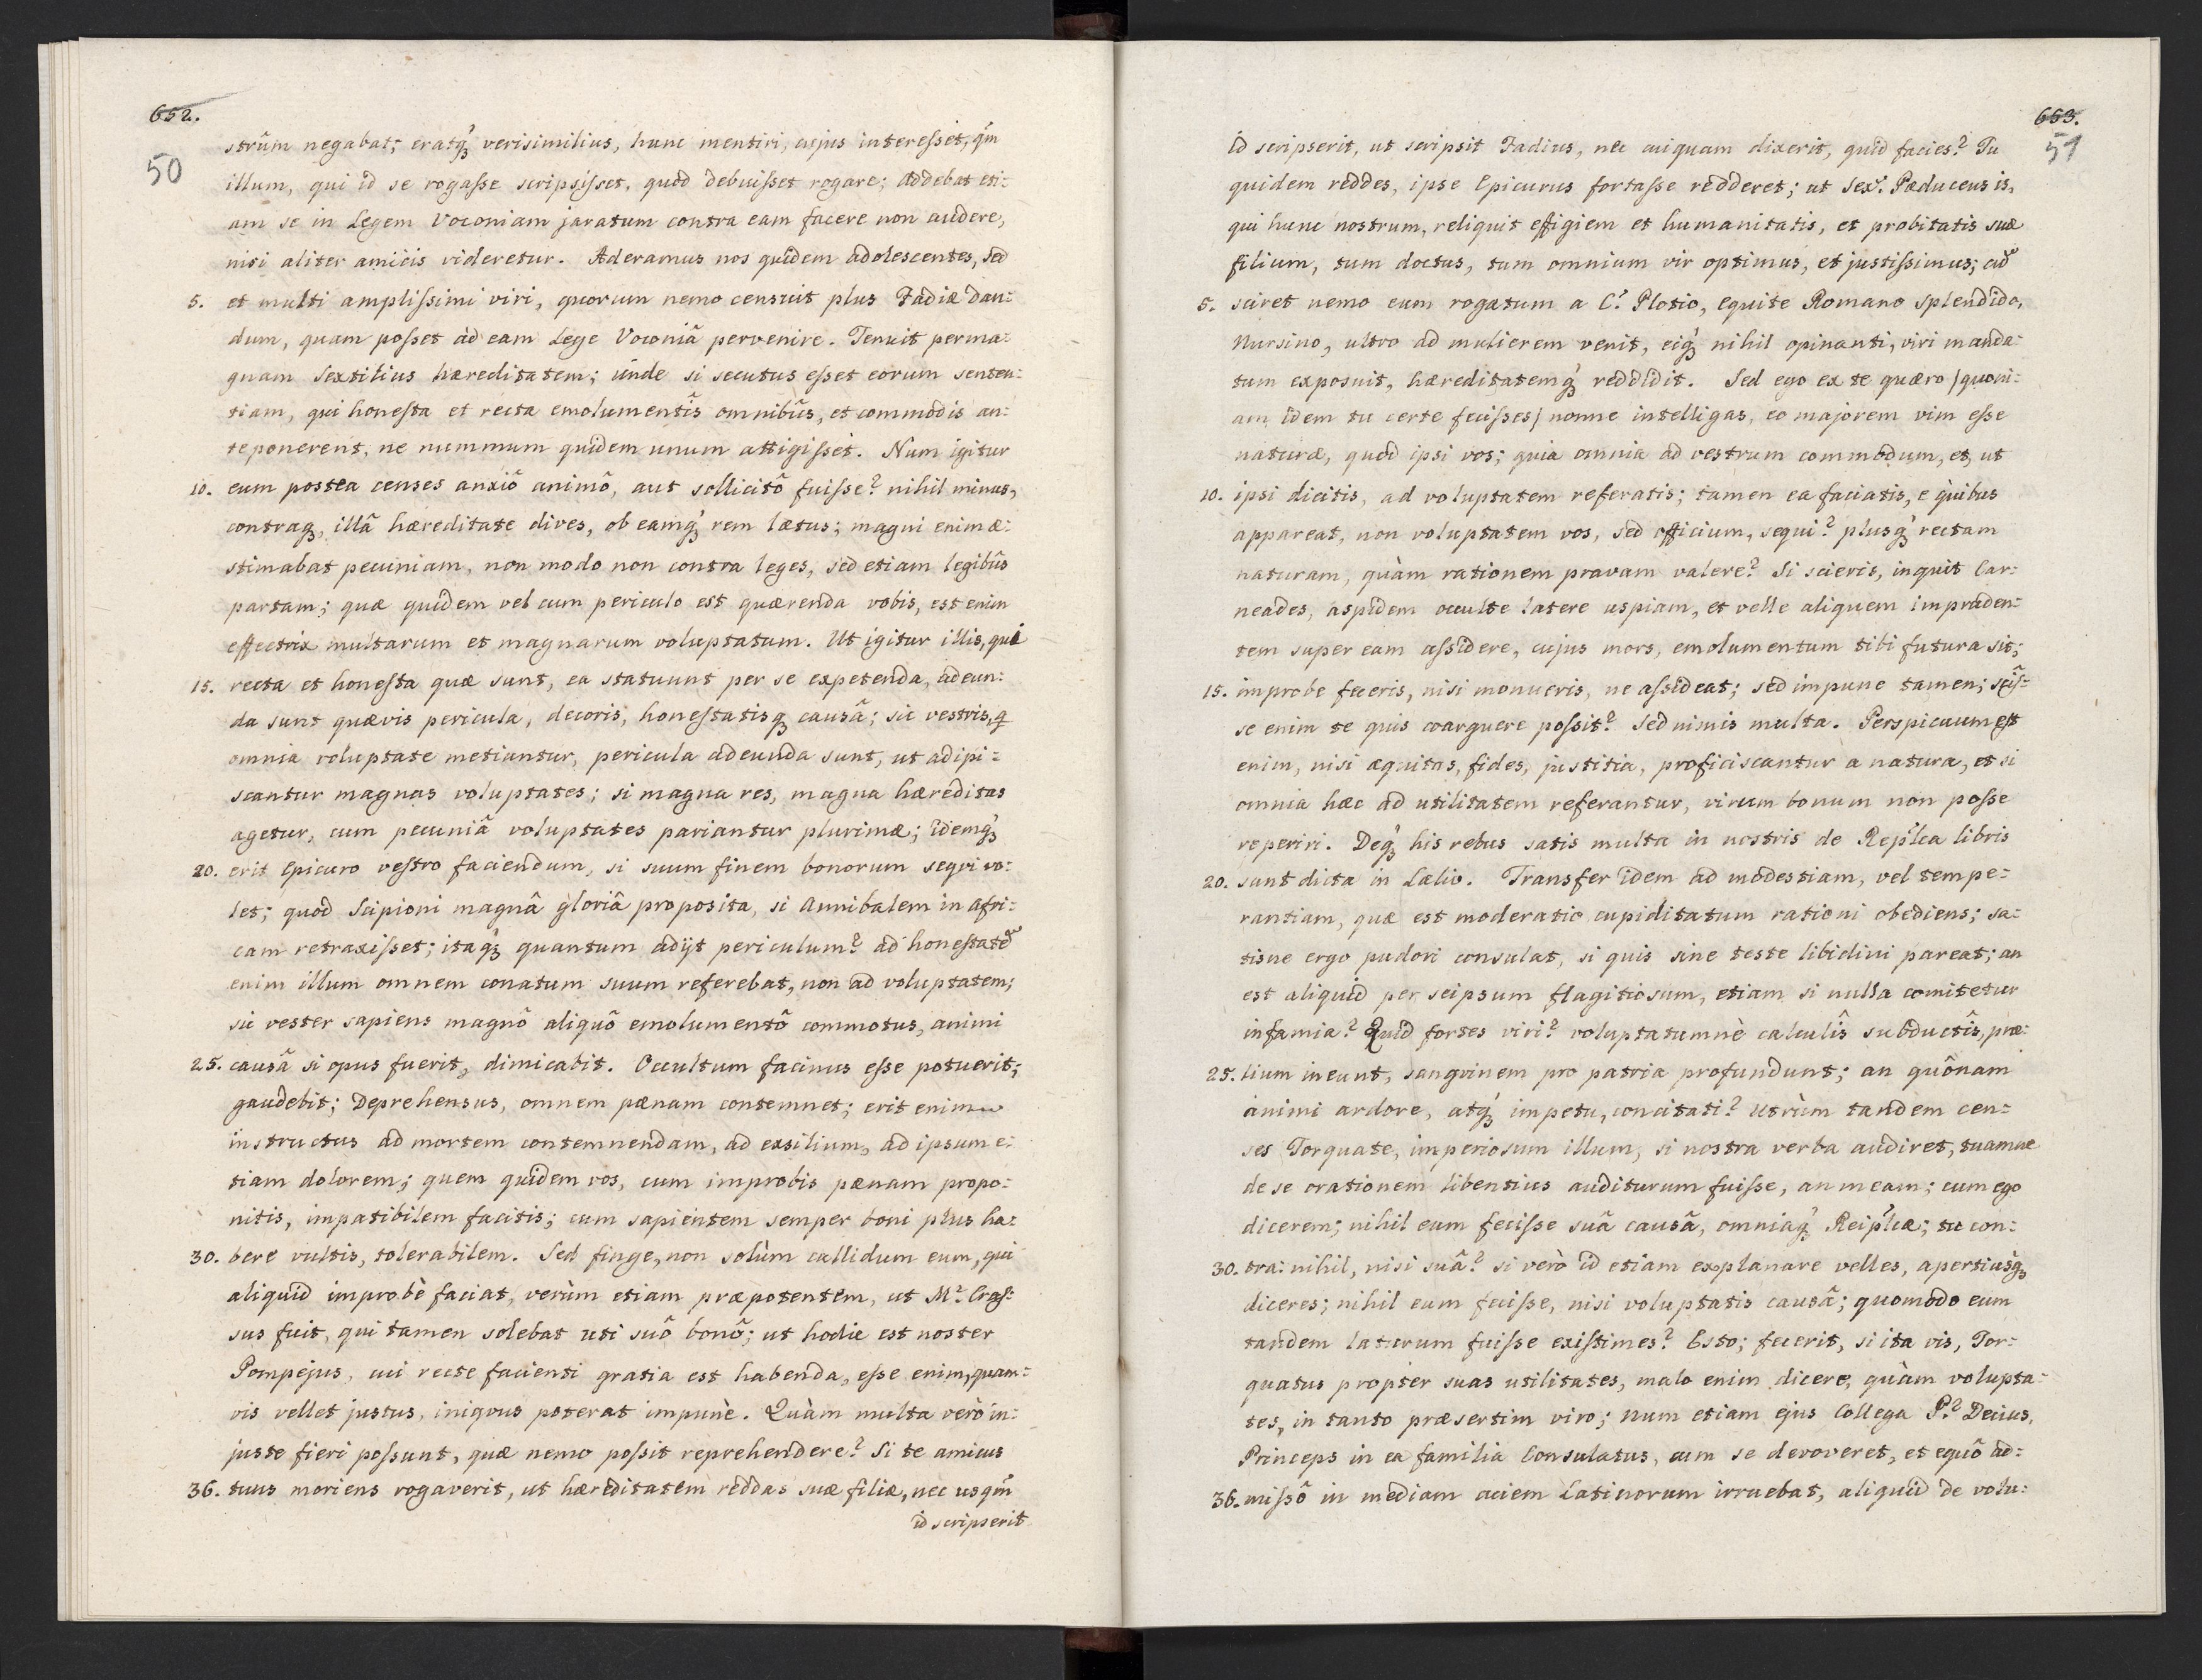 652.
50
strûm negabat; eratq́ꝫ verisimilius, hunc mentiri, cujus interesset, q̃m
illum, qui id se rogasse scripsisset, quod debuisset rogare; addebat eti:
am se in Legem Voconiam juratum contra eam facere non audere,
nisi aliter amicis videretur. Aderamus nos quidem adolescentes, sed
5. et multi amplissimi viri, quorum nemo censuit plus Fadiæ dan:
dum, quam posset ad eam Lege Voconiâ pervenire. Tenuit perma:
gnam Sextilius hæreditatem; unde si secutus esset eorum senten:
tiam, qui honesta et recta emolumentîs omnibûs, et commodis an:
teponerent, ne nummum quidem unum attigisset. Num igitur
10. eum postea censes anxiô animô, aut sollicitô fuisse? nihil minus,
contraqꝫ, illâ hæreditate dives, ob eamq́ꝫ rem lætus; magni enim æ:
stimabat pecuniam, non modo non contra leges, sed etiam legibûs
partam; quæ quidem vel cum periculo est quærenda vobis, est enim
effectrix multarum et magnarum voluptatum. Ut igitur illis, qui
15. recta et honesta quæ sunt, ea statuunt per se expetenda, adeun:
da sunt quævis pericula, decoris, honestatisqꝫ causâ; sic vestris, q̃
omnia voluptate metiantur, pericula adeunda sunt, ut adipi:
scantur magnas voluptates; si magna res, magna hæreditas
agetur, cum pecuniâ voluptates pariantur plurimæ; idemq́ꝫ
20. erit Epicuro vestro faciendum, si suum finem bonorum sequi vo:
let; quod Scipioni magnâ gloriâ proposita, si Annibalem in Afri:
cam retraxisset; itaq́ꝫ quantum adijt periculum? ad honestatẽ
enim illum omnem conatum suum referebat, non ad voluptatem;
sic vester sapiens magnô aliquô emolumentô commotus, animi
25. causâ si opus fuerit, dimicabit. Occultum facinus esse potuerit;
gaudebit; Deprehensus, omnem pænam contemnet; erit enim
instructus ad mortem contemnendam, ad exsilium, ad ipsum e:
tiam dolorem; quem quidem vos, cum improbis pænam propo:
nitis, impatibilem facitis; cum sapientem semper boni plus ha:
30. bere vultis, tolerabilem. Sed finge, non solùm callidum eum, qui
aliquid improbè faciat, verùm etiam præpotentem, ut M. Cras:
sus fuit, qui tamen solebat uti suô bonô; ut hodie est noster
Pompejus, cui recte facienti gratia est habenda, esse enim, quam:
vis vellet justus, iniqvus poterat impunè. Quàm multa verò in:
juste fieri possunt, quæ nemo possit reprehendere? Si te amicus
36. tuus moriens rogaverit, ut hæreditatem reddas suæ filiæ, nec usq̃m
id scripserit
653.
51
id scripserit, ut scripsit Fadius, nec cuiquam dixerit, quid facies? Tu
quidem reddes, ipse Epicurus fortasse redderet; ut Sex. Pæduceus is,
qui hunc nostrum, reliquit effigiem et humanitatis, et probitatis suæ
filium, tum doctus, tum omnium vir optimus, et justissimus; cũ
5. sciret nemo eum rogatum a C. Plotio, Equite Romano splendido,
Nursino, ultro ad mulierem venit, eiq́ꝫ nihil opinanti, viri manda:
tum exposuit, hæreditatemq́ꝫ reddidit. Sed ego ex te quæro /quoni:
am idem tu certe fecisses/ nonne intelligas, eo majorem vim esse
naturæ, quod ipsi vos; quia omnia ad vestrum commodum, et, ut
10. ipsi dicitis, ad voluptatem referatis; tamen ea faciatis, e quibus
appareat, non voluptatem vos, sed officium, sequi? plusq́ꝫ rectam
naturam, quàm rationem pravam valere? Si scieris, inquit Car:
neades, aspidem occulte latere uspiam, et velle aliquem impruden:
tem super eam assidere, cujus mors, emolumentum tibi futura sit;
15. improbe feceris, nisi monueris, ne assideat; sed impune tamen; scîs:
se enim te quis coarguere possit? Sed nimis multa. Perspicuum est
enim, nisi æquitas, fides, justitia, proficiscantur a natura, et si
omnia hæc ad utilitatem referantur, virum bonum non posse
reperiri. Deq́ꝫ his rebus satis multa in nostris de Rep̃lca libris
20. sunt dicta in Lælio. Transfer idem ad modestiam, vel tempe:
rantiam, quæ est moderatio cupiditatum rationi obediens; sa:
tisne ergo pudori consulat, si quis sine teste libidini pareat; an
est aliquid per seipsum flagitiosum, etiam si nulla comitetur
infamia? Quid fortes viri? voluptatumnè calculîs subductîs, præ:
25. lium ineunt, sangvinem pro patria profundunt; an quônam
animi ardore, atq́ꝫ impetu, concitati? Utrùm tandem cen:
ses Torquate, imperiosum illum, si nostra verba audiret, tuamne
de se orationem libentius auditurum fuisse, an meam; cum ego
dicerem; nihil eum fecisse suâ causâ, omniaq́ꝫ Reip̃lcæ; tu con:
30. tra: nihil, nisi suâ? si verò id etiam explanare velles, apertiusq́ꝫ
diceres; nihil eum fecisse, nisi voluptatis causâ; quomodo eum
tandem laturum fuisse existimes? Esto; fecerit, si ita vis, Tor:
quatus propter suas utilitates, malo enim dicere, quàm volupta:
tes, in tanto præsertim viro; num etiam ejus Collega P. Decius,
Princeps in ea familia Consulatus, cum se devoveret, et equô ad:
36. missô in mediam aciem Latinorum irruebat, aliquid de volu: